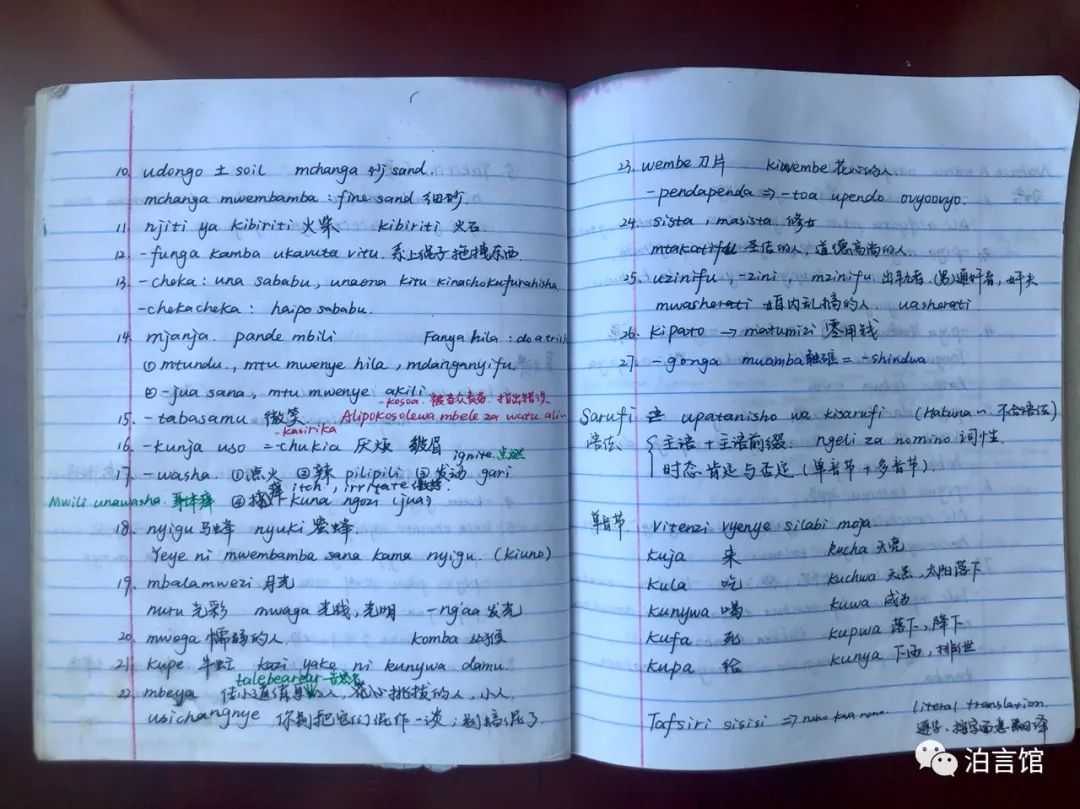 10. udongo 土 soil mchanga 沙 sand.
mchanga mwembamba : fine sand 细砂.
11. njiti ya kibiriti 火柴 kibiriti 火石
12. -funga kamba ukavuta vitu. 系上绳子拖拽东西.
13. -cheka : una sababu, unaona kitu kinachokufurahisha
-chekacheka : haipo sababu.
14. mjanja. pande mbili Fanya hila : do a trick
① mtundu, mtu mwenye hila, mdanganyifu.
② -jua sana, mtu mwenye akili
-kosoa. 指出错误
15. -tabasamu 微笑 Alipokosolewa mbele za watu alin
-kasirika
16. -kunja uso = -chukia 厌烦 皱眉
ignite. 点燃
17. -washa ①点火 ②辣 pilipili ③发动 gari
itch, irritate
Mwili unawasha. 身体痒 ④ kuna ngozi (jua)
18. nyigu 马蜂 nyuki 蜜蜂
Yeye ni mwembamba sana kama nyigu. (kiuno)
19. mbalamwezi 月光
nuru 光彩 mwaga 光线, 光明 -ng'aa 发光
20. mwoga 懦弱的人. komba 丛猴
21. kupe 牛虻 kazi yake ni kunywa damu.
talebearer
22. mbeya 传小道消息的人, 挑拨的人, 小人.
usichangnye 你别把它们混作一谈 ; 别搞混了
23. wembe 刀片 kiwembe 花心的人
-pendapenda => -toa upendo ovyoovyo.
24. sista, masista 修女
mtakatifu 圣洁的人, 道德高尚的人
25. uzinifu, -zini, mzinifu. 出轨者 (男)通奸者, 奸夫
mwasherati 婚内乱搞的人. uasherati.
26. kipato → matumizi 零用钱
27. -gonga muamba 触礁 = -shindwa
Sarufi upatanisho wa kisarufi (Hakuna ~ 不合语法)
语法 主语 + 主语前缀. ngeli za nomino 词性.
时态 肯定与否定 (单音节 + 多音节).
单音节 vitenzi vyenye silabi moja
kuja 来 kucha 天亮
kula 吃 kuchwa 天黑, 太阳落下
kunywa 喝 kuwa 成为
kufa 死 kupwa 落下, 降下
kupa 给 kunya 下雨, 排泄
Tafsiri sisisi => neno kwa neno. literal translation.
逐字、按字面意思翻译
泊言馆